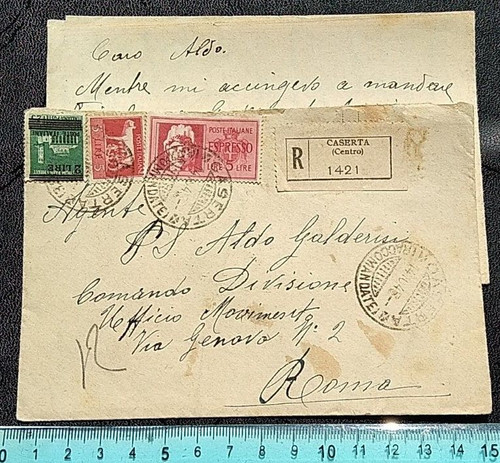 Caro Aldo.
Mentre mi accingevo a mandare
POSTE ITALIANE
ESPRESSO
LIRE 5 LIRE
5 LIRE
R
CASERTA
(Centro)
1421
Agente
PS Aldo Galderisi
Comando Divisione
Ufficio Movimento
Via Genova N° 2
Roma
CASERTA
RACCOMANDATE
0 1 2 3 4 5 6 7 8 9 10 11 12 13 14 15